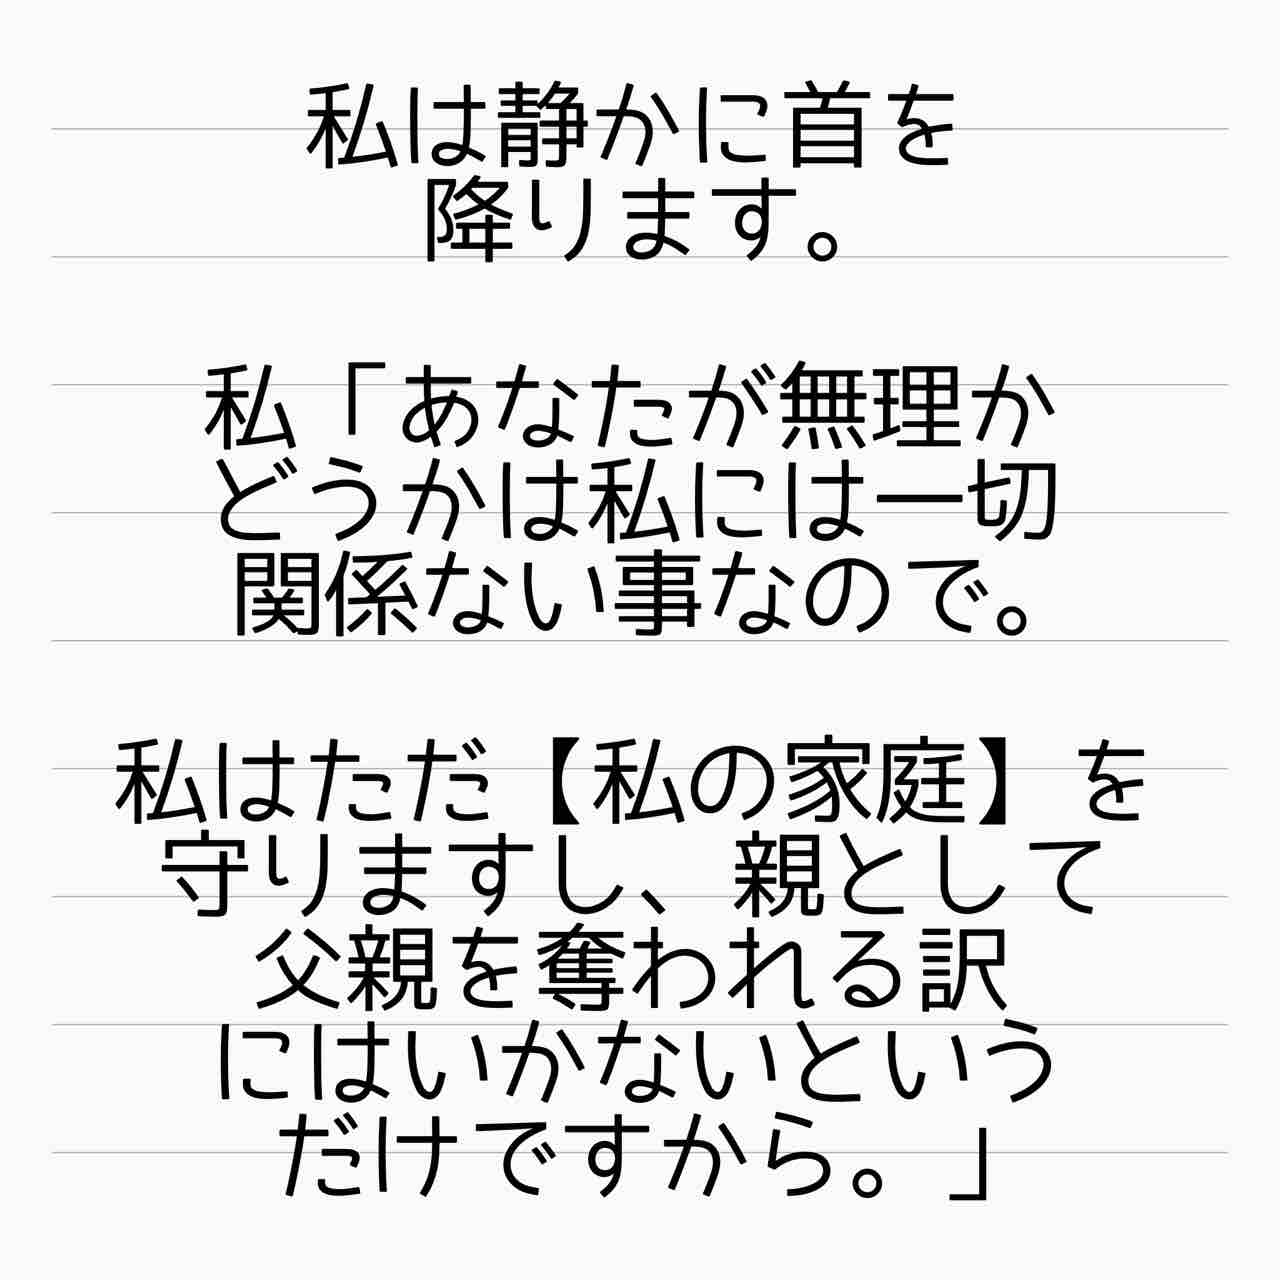 私は静かに首を
降ります。
私「あなたが無理か
どうかは私には一切
関係ない事なので。
私はただ【私の家庭】を
守りますし、親として
父親を奪われる訳
にはいかないという
だけですから。」